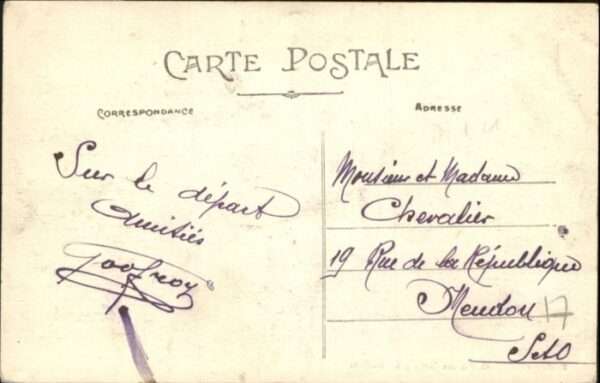 CARTE POSTALE
CORRESPONDANCE
ADRESSE
Sur le départ
Amitiés
Godfroy
Monsieur et Madame
Chevalier
19 Rue de la République
Meudon 17
S&O